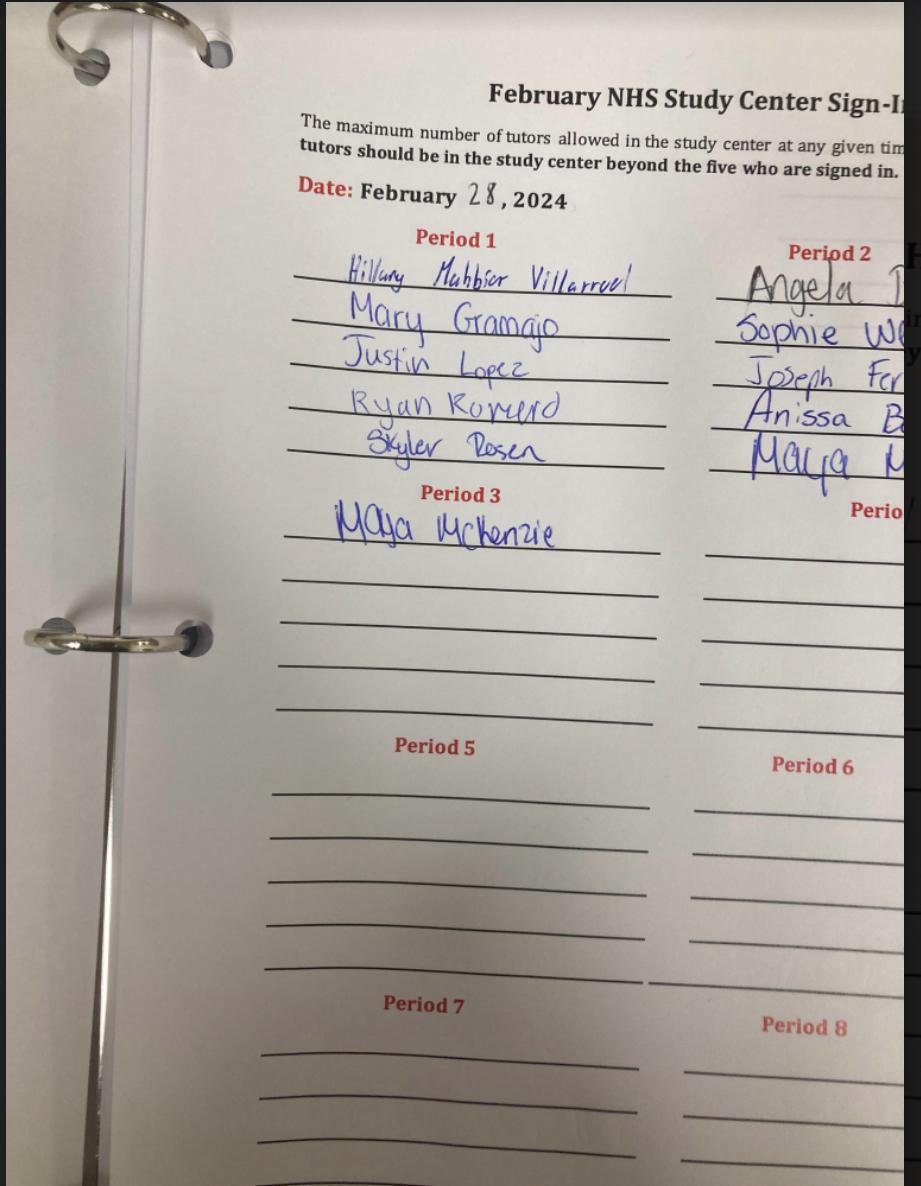 February NHS Study Center Sign-I
The maximum number of tutors allowed in the study center at any given tim
tutors should be in the study center beyond the five who are signed in.
Date: February 28, 2024
Period 1
Hillary Mahbior Villarruel
Mary Gramajo
Justin Lopez
Ryan Romero
Skyler Rosen
Period 2
Angela
Sophie We
Joseph Fer
Anissa B
Maya M
Period 3
Maya McKenzie
Perio
Period 5
Period 6
Period 7
Period 8